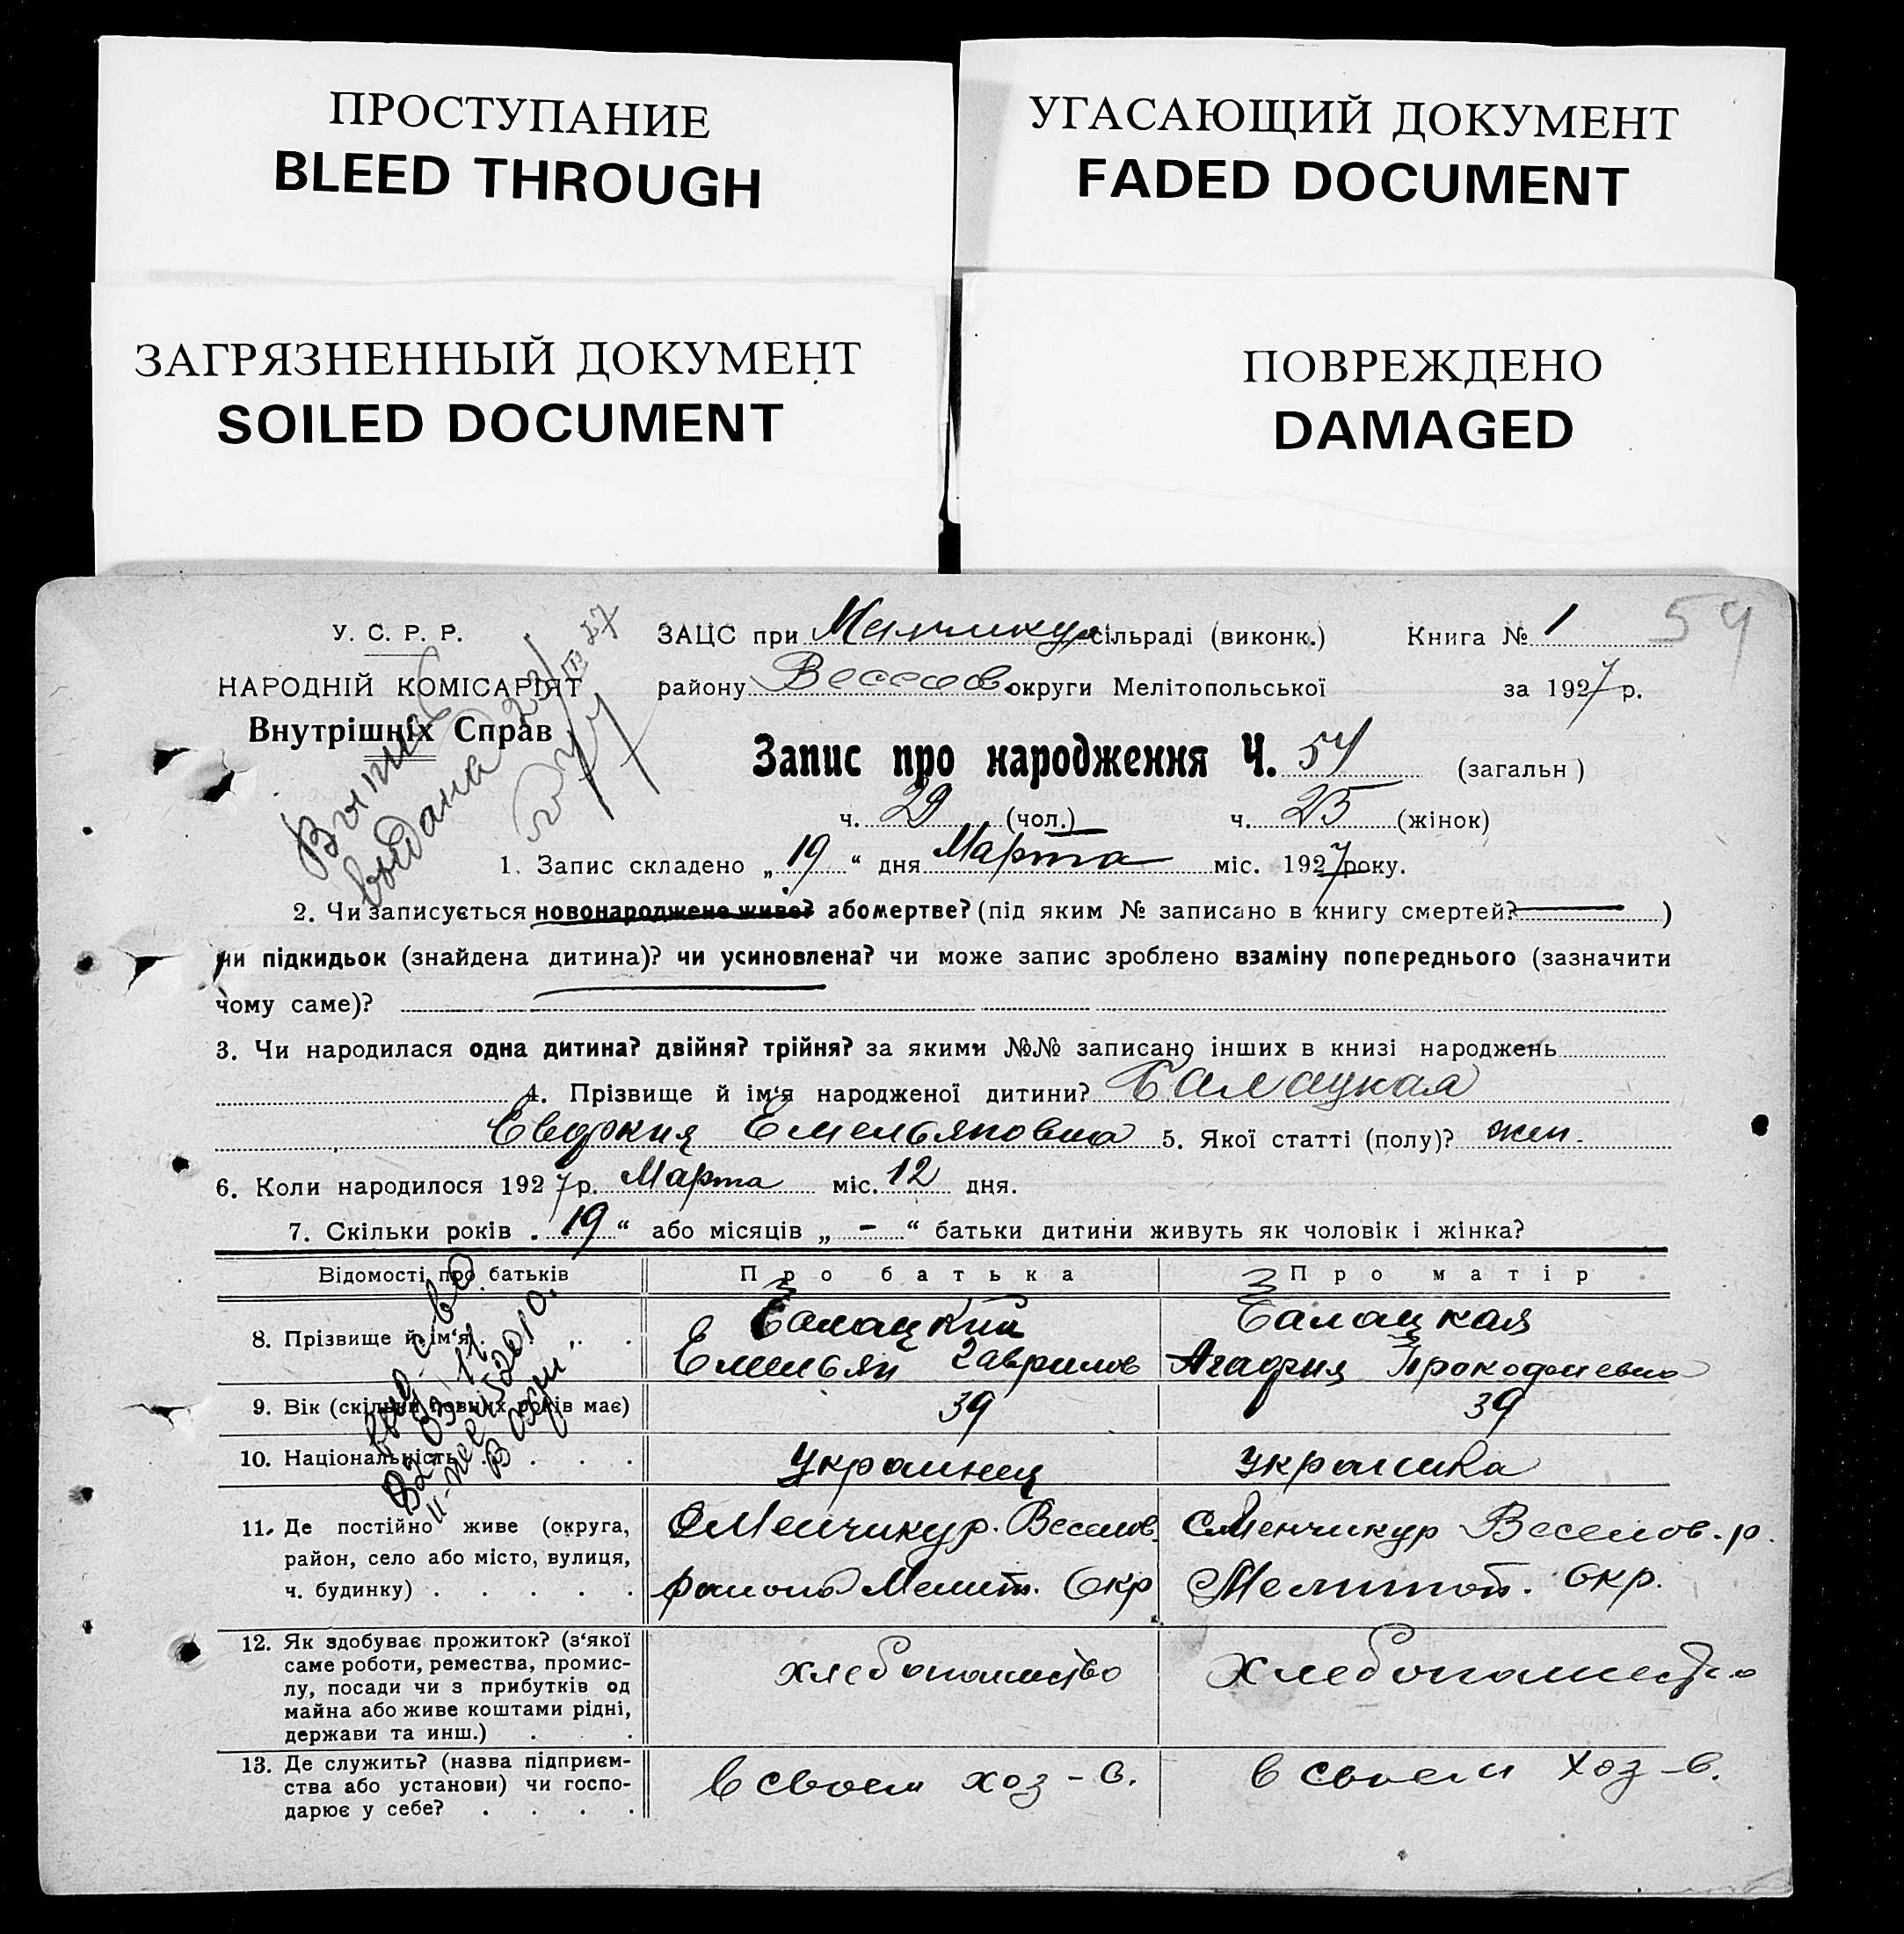 ПРОСТУПАНИЕ
BLEED THROUGH
УГАСАЮЩИЙ ДОКУМЕНТ
FADED DOCUMENT
ЗАГРЯЗНЕННЫЙ ДОКУМЕНТ
SOILED DOCUMENT
ПОВРЕЖДЕНО
DAMAGED
У. С. Р. Р.
НАРОДНІЙ КОМІСАРІЯТ
Внутрішніх Справ
выдана 22/III 27
ЗАЦС при Менчикур сільраді (виконк.) Книга № 1 54
району Веселов округи Мелітопольської за 1927 р.
Запис про народження Ч. 54 (загальн)
ч. 29 (чол.) ч. 25 (жінок)
1. Запис складено „19“ дня Марта міс. 1927 року.
2. Чи записується новонароджене живе? або мертве? (під яким № записано в книгу смертей? )
чи підкидьок (знайдена дитина)? чи усиновлена? чи може запис зроблено взаміну попереднього (зазначити
чому саме)?
3. Чи народилася одна дитина? двійня? трійня? за якими №№ записано інших в книзі народжень
4. Прізвище й ім‘я народженої дитини? Балацкая
Евдокия Емельяновна 5. Якої статті (полу)? жен.
6. Коли народилося 1927 р. Марта міс. 12 дня.
7. Скільки років „19“ або місяців „ – “ батьки дитини живуть як чоловік і жінка?
Відомості про батьків Про батька Про матір
8. Прізвище й ім‘я . . . Балацкий Балацкая
Емельян Гаврилов Агафия Прокофиевна
9. Вік (скільки повних років має) 39 39
10. Національність . . . . украинец украинка
11. Де постійно живе (округа,
район, село або місто, вулиця,
ч. будинку) . . . . .
С Менчикур. Веселов.
района Мелит. Окр.
С Менчикур Веселов. р.
Мелитоп. Окр.
12. Як здобуває прожиток? (з‘якої
саме роботи, ремества, промис-
лу, посади чи з прибутків од
майна або живе коштами рідні,
держави та инш.) . .
хлебопашество
хлебопашество
13. Де служить? (назва підприєм-
ства або установи) чи госпо-
дарює у себе? . . . .
в своем хоз-в.
в своем хоз-в.